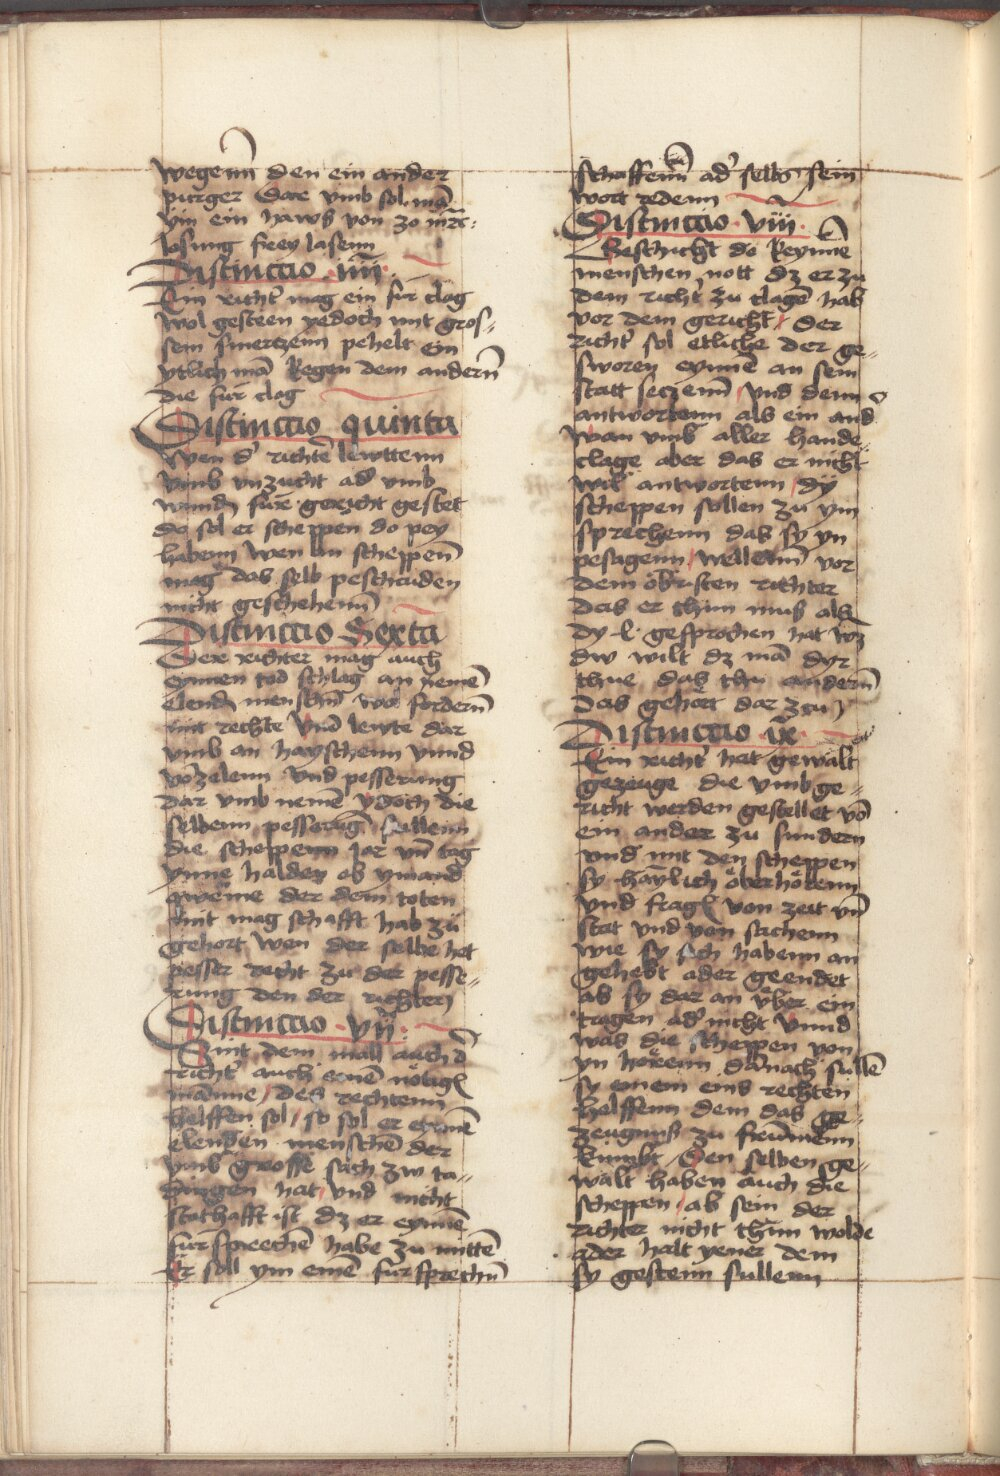 wegenn den ein ander
purger Dar vmb sol mā
ym ein haws von zo
losung frey lasenn
Distinccio · iiii ·
Ein richt' mag ein fur clag
wol gesteen yedoch mit gros-
sem smertzenn pehelt ein
ytlich mā kegen dem andern̄
die fur clag
Distinccio quinta
Wen d' richtē lewttenn
vmb vnzucht ad' vmb
wunden fure gericht gestet
do sol er scheppen do pey
habenn wen an scheppen̄
mag das selb pescheiden
nicht geschehenn̄
Distinccio Sexta
Der richter mag auch
eynnen tod schlag an yemē
elenden menschn̄ wol fordern̄
mit rechte vnd lewte dar
vmb an hayschenn vnnd
vorzelenn vnd pesserung
dar vmb nemē ydoch die
selbenn pesserūg sullenn
die scheppenn jar vn̄ tag
ynne halden ob ymand
qweme der dem toten
mit mag schafft hab zu
gehort wen der selbe het
pesser recht zu der pesse-
rung den der richter
Distinccio · vii ·
Sint dem mall auch d'
richt' auch ernē nötigen
manne / des rechtenn
helffen sol / so sol er eynnē
elenden menschē der
vmb grosse sach zw ta-
dingen hat / vnd nicht
stathafft ist dz er eynnē
fursprechē habe zu mittē
Er soll ym einē fursprechn̄
schaffenn̄ ad' selbs sein
wort redenn
Distinccio · viii ·
Geschicht do keynne
menschen nott dz er zu
dem richt' zu clagē hab
vor dem gericht / Der
richt' sol etliche der ge-
sworen eynnē an sein
statt seczenn̄ / vnd denn
antwortenn als ein and'
wan vmb aller hande
clage aber das er nicht
wil antwortenn / dy
scheppen sollen zu ym
sprechenn das sy yn
pesagenn / wellenn̄ vor
dem öbristen richter
das er thun muss als
dy · l · gesprochen hat wz
dw wilt dz mā dyr
thue das thu andern̄
das gehört dar zcu
Distinccio · ix ·
Ein richt' hat gewalt
gezeuge die vmb ge-
richt werden gestellet vō
ein ander zu sundern
vnd mit den scheppen
sy haylich öberhörenn
vnd fragen von zeit vn̄
stat vnd von sachenn
wie sy sich habenn an
gehebt ader geendet
ab sy dar an vber ein
tragen ad' nicht vnnd
was die scheppen von
yn hörenn darnach sullē
sy einem eins rechten
helffenn dem das ge-
zeugnuss zu frūmenn
kumbt / Den selben ge-
walt haben auch die
scheppen / ab sein der
richter nicht thun wolde
ader halt yener dem
sy gesteen sullenn